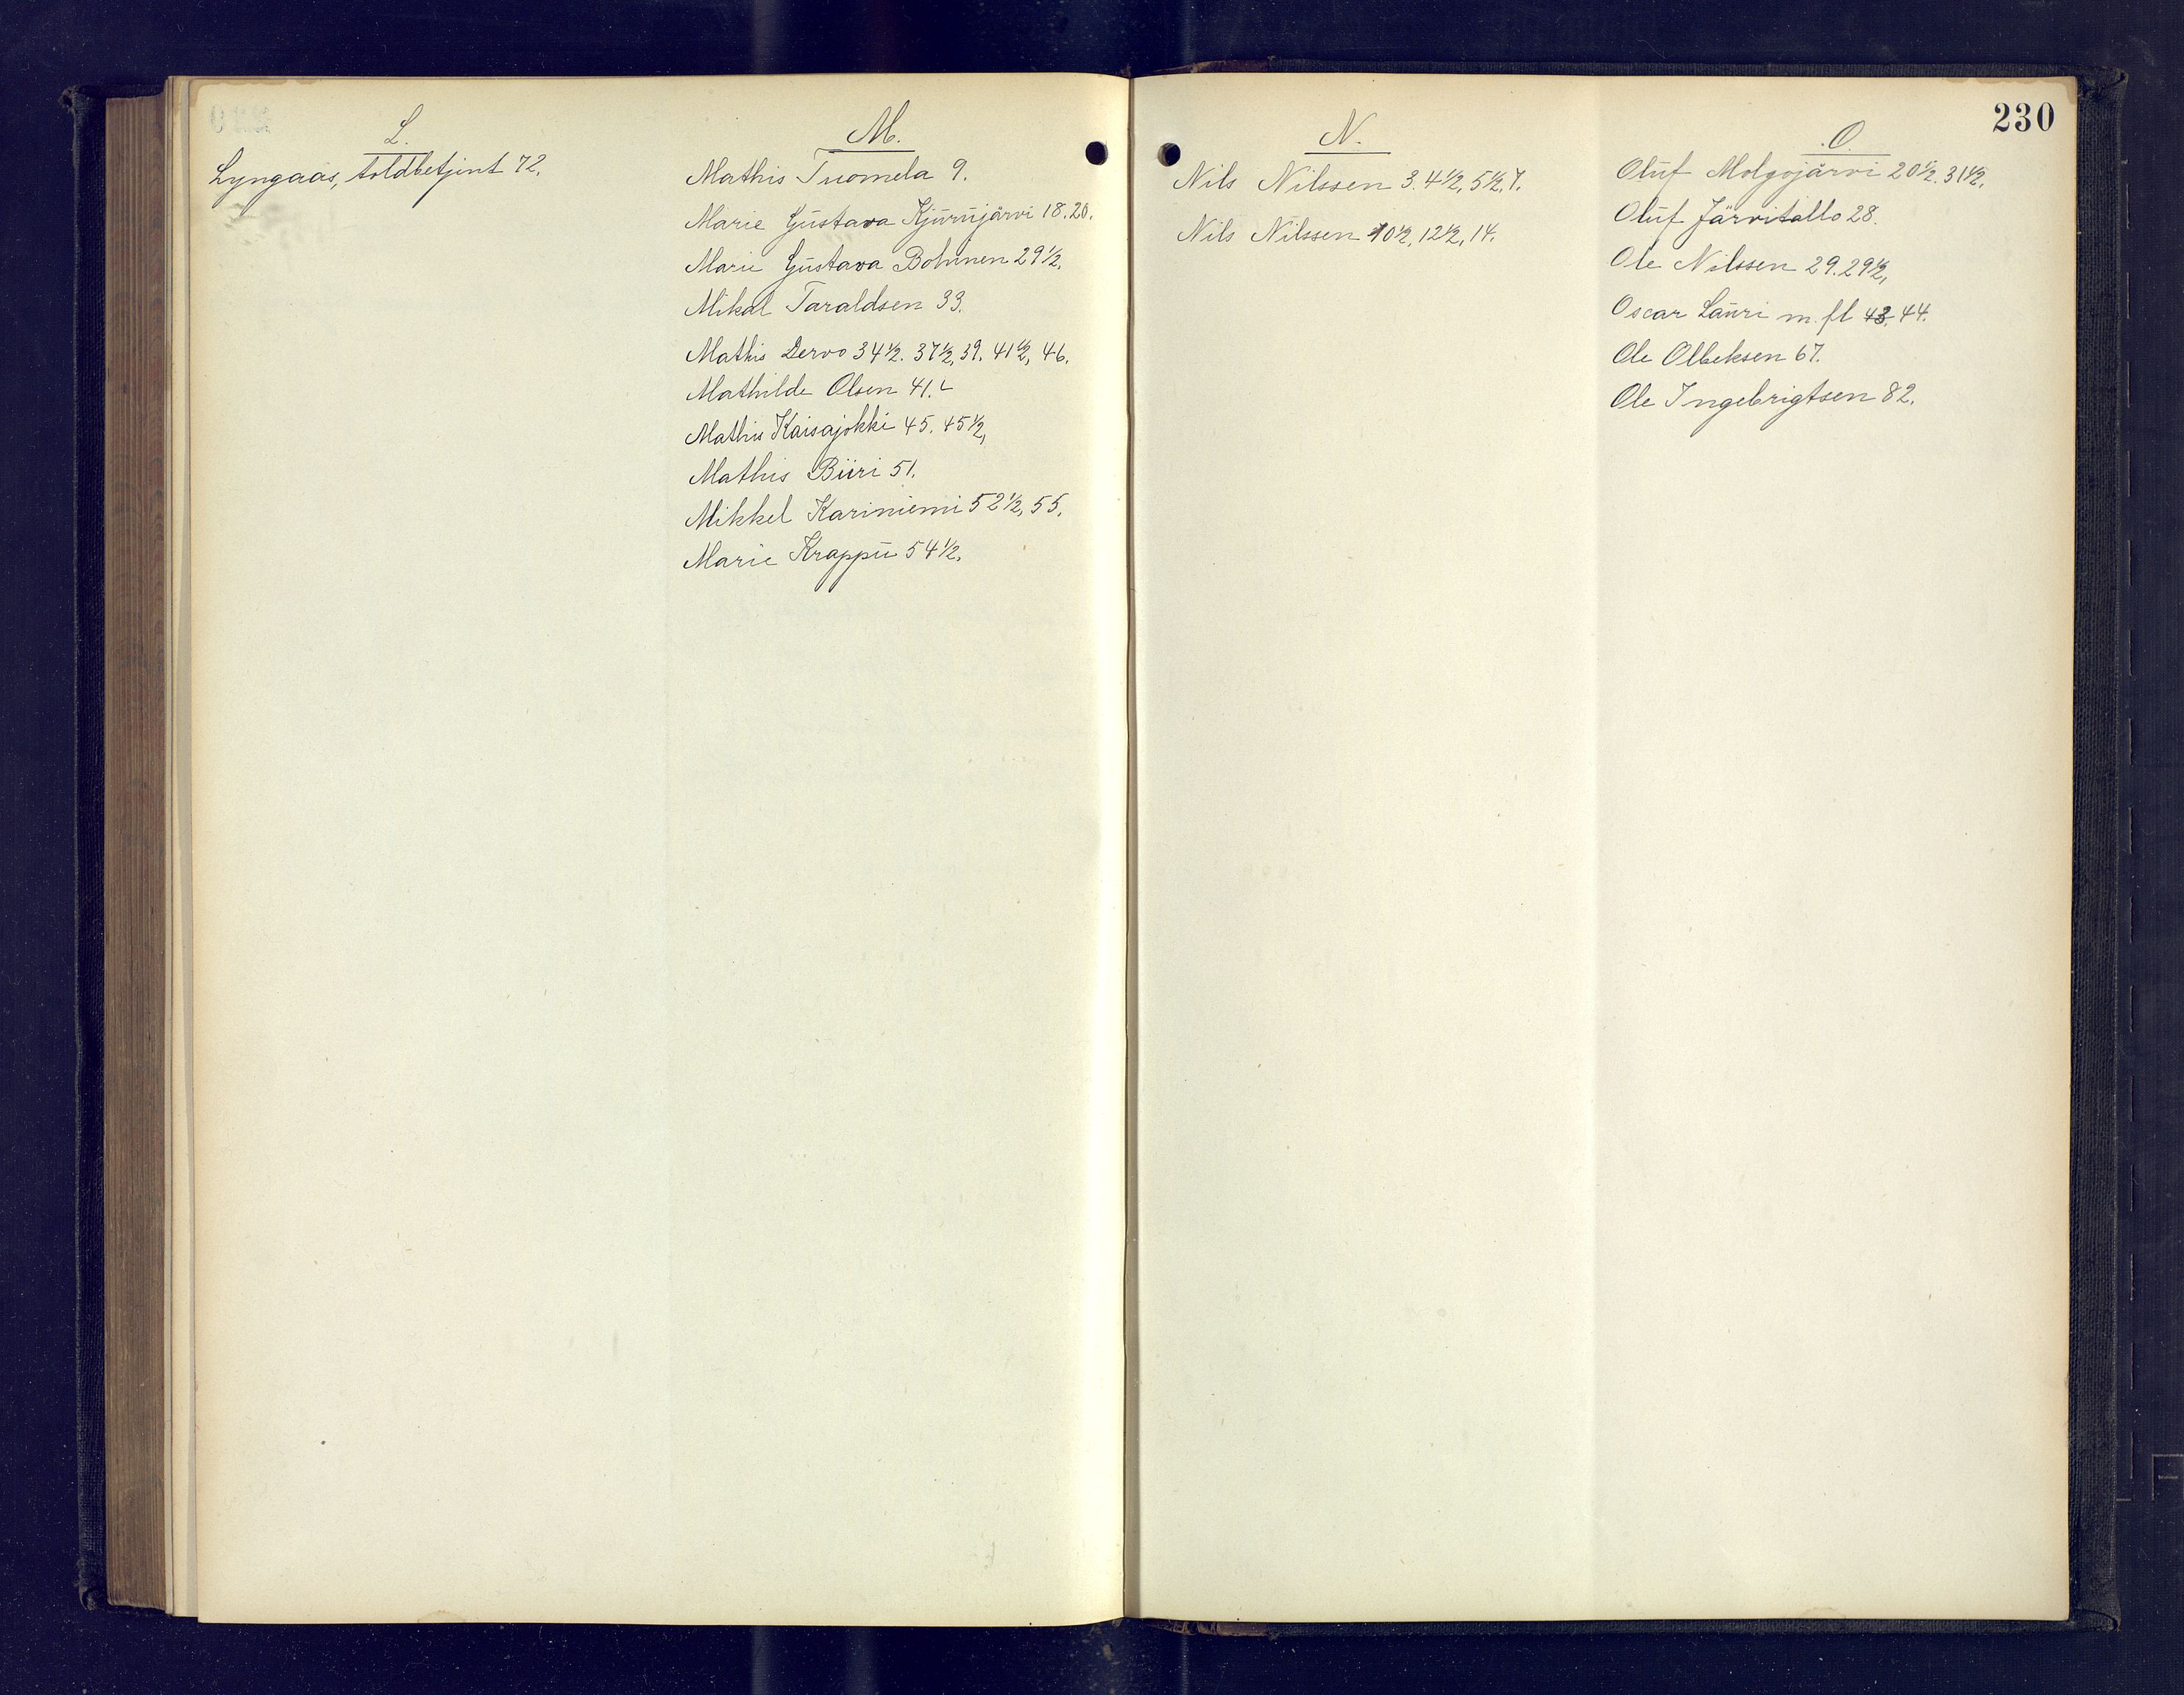 L.
Lyngaas, toldbetjent 72.
M.
Mathis Tuomela 9.
Marie Gustava Kjurujärvi 18. 20.
Marie Gustava Bohnen 29½.
Mikal Taraldsen 33.
Mathis Dervo 34½. 37½, 39. 41½, 46.
Mathilde Olsen 41.
Mathis Kaisajokki 45. 45½,
Mathis Biiri 51.
Mikkel Kariniemi 52½, 55.
Marie Krappu 54½.
N.
Nils Nilssen 3. 4½, 5½, 7.
Nils Nilssen 10½, 12½, 14.
230
O.
Oluf Molgojärvi 20½. 31½.
Oluf Järvitallo 28.
Ole Nilssen 29. 29½,
Oscar Lauri m. fl 43. 44.
Ole Olbeksen 67.
Ole Ingebrigtsen 82.